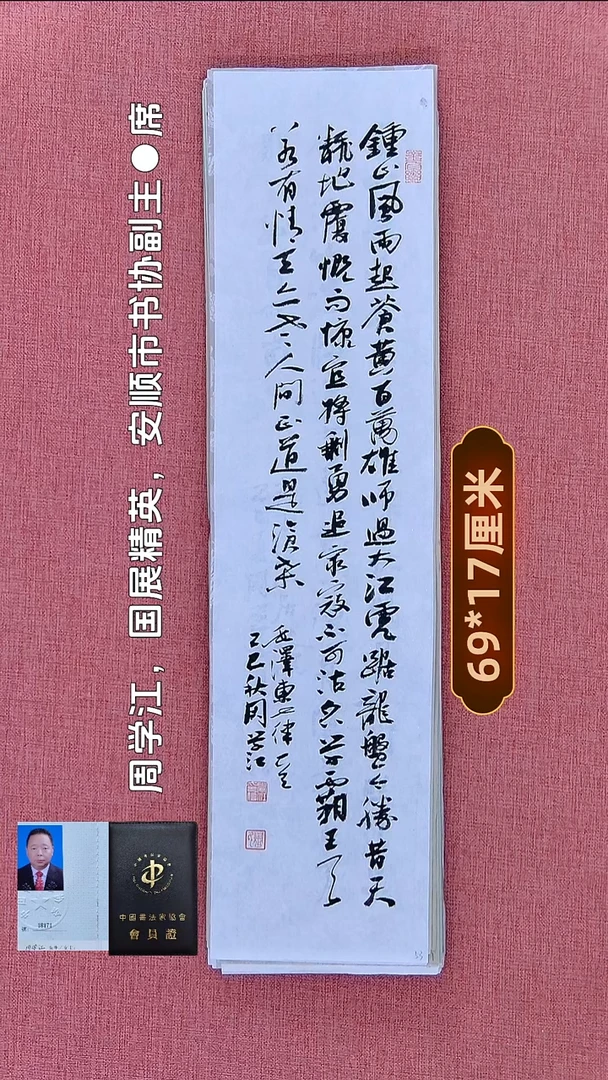 鍾山風雨起蒼黄百萬雄師過大江虎踞龍盤今勝昔天
翻地覆慨而慷宜將剩勇追窮寇不可沽名学霸王天
若有情天亦老人間正道是滄桑
毛澤東七律一首
乙巳秋周学江
周学江，国展精英，安顺市书协副主●席
69*17厘米
中國書法家協會
會員證